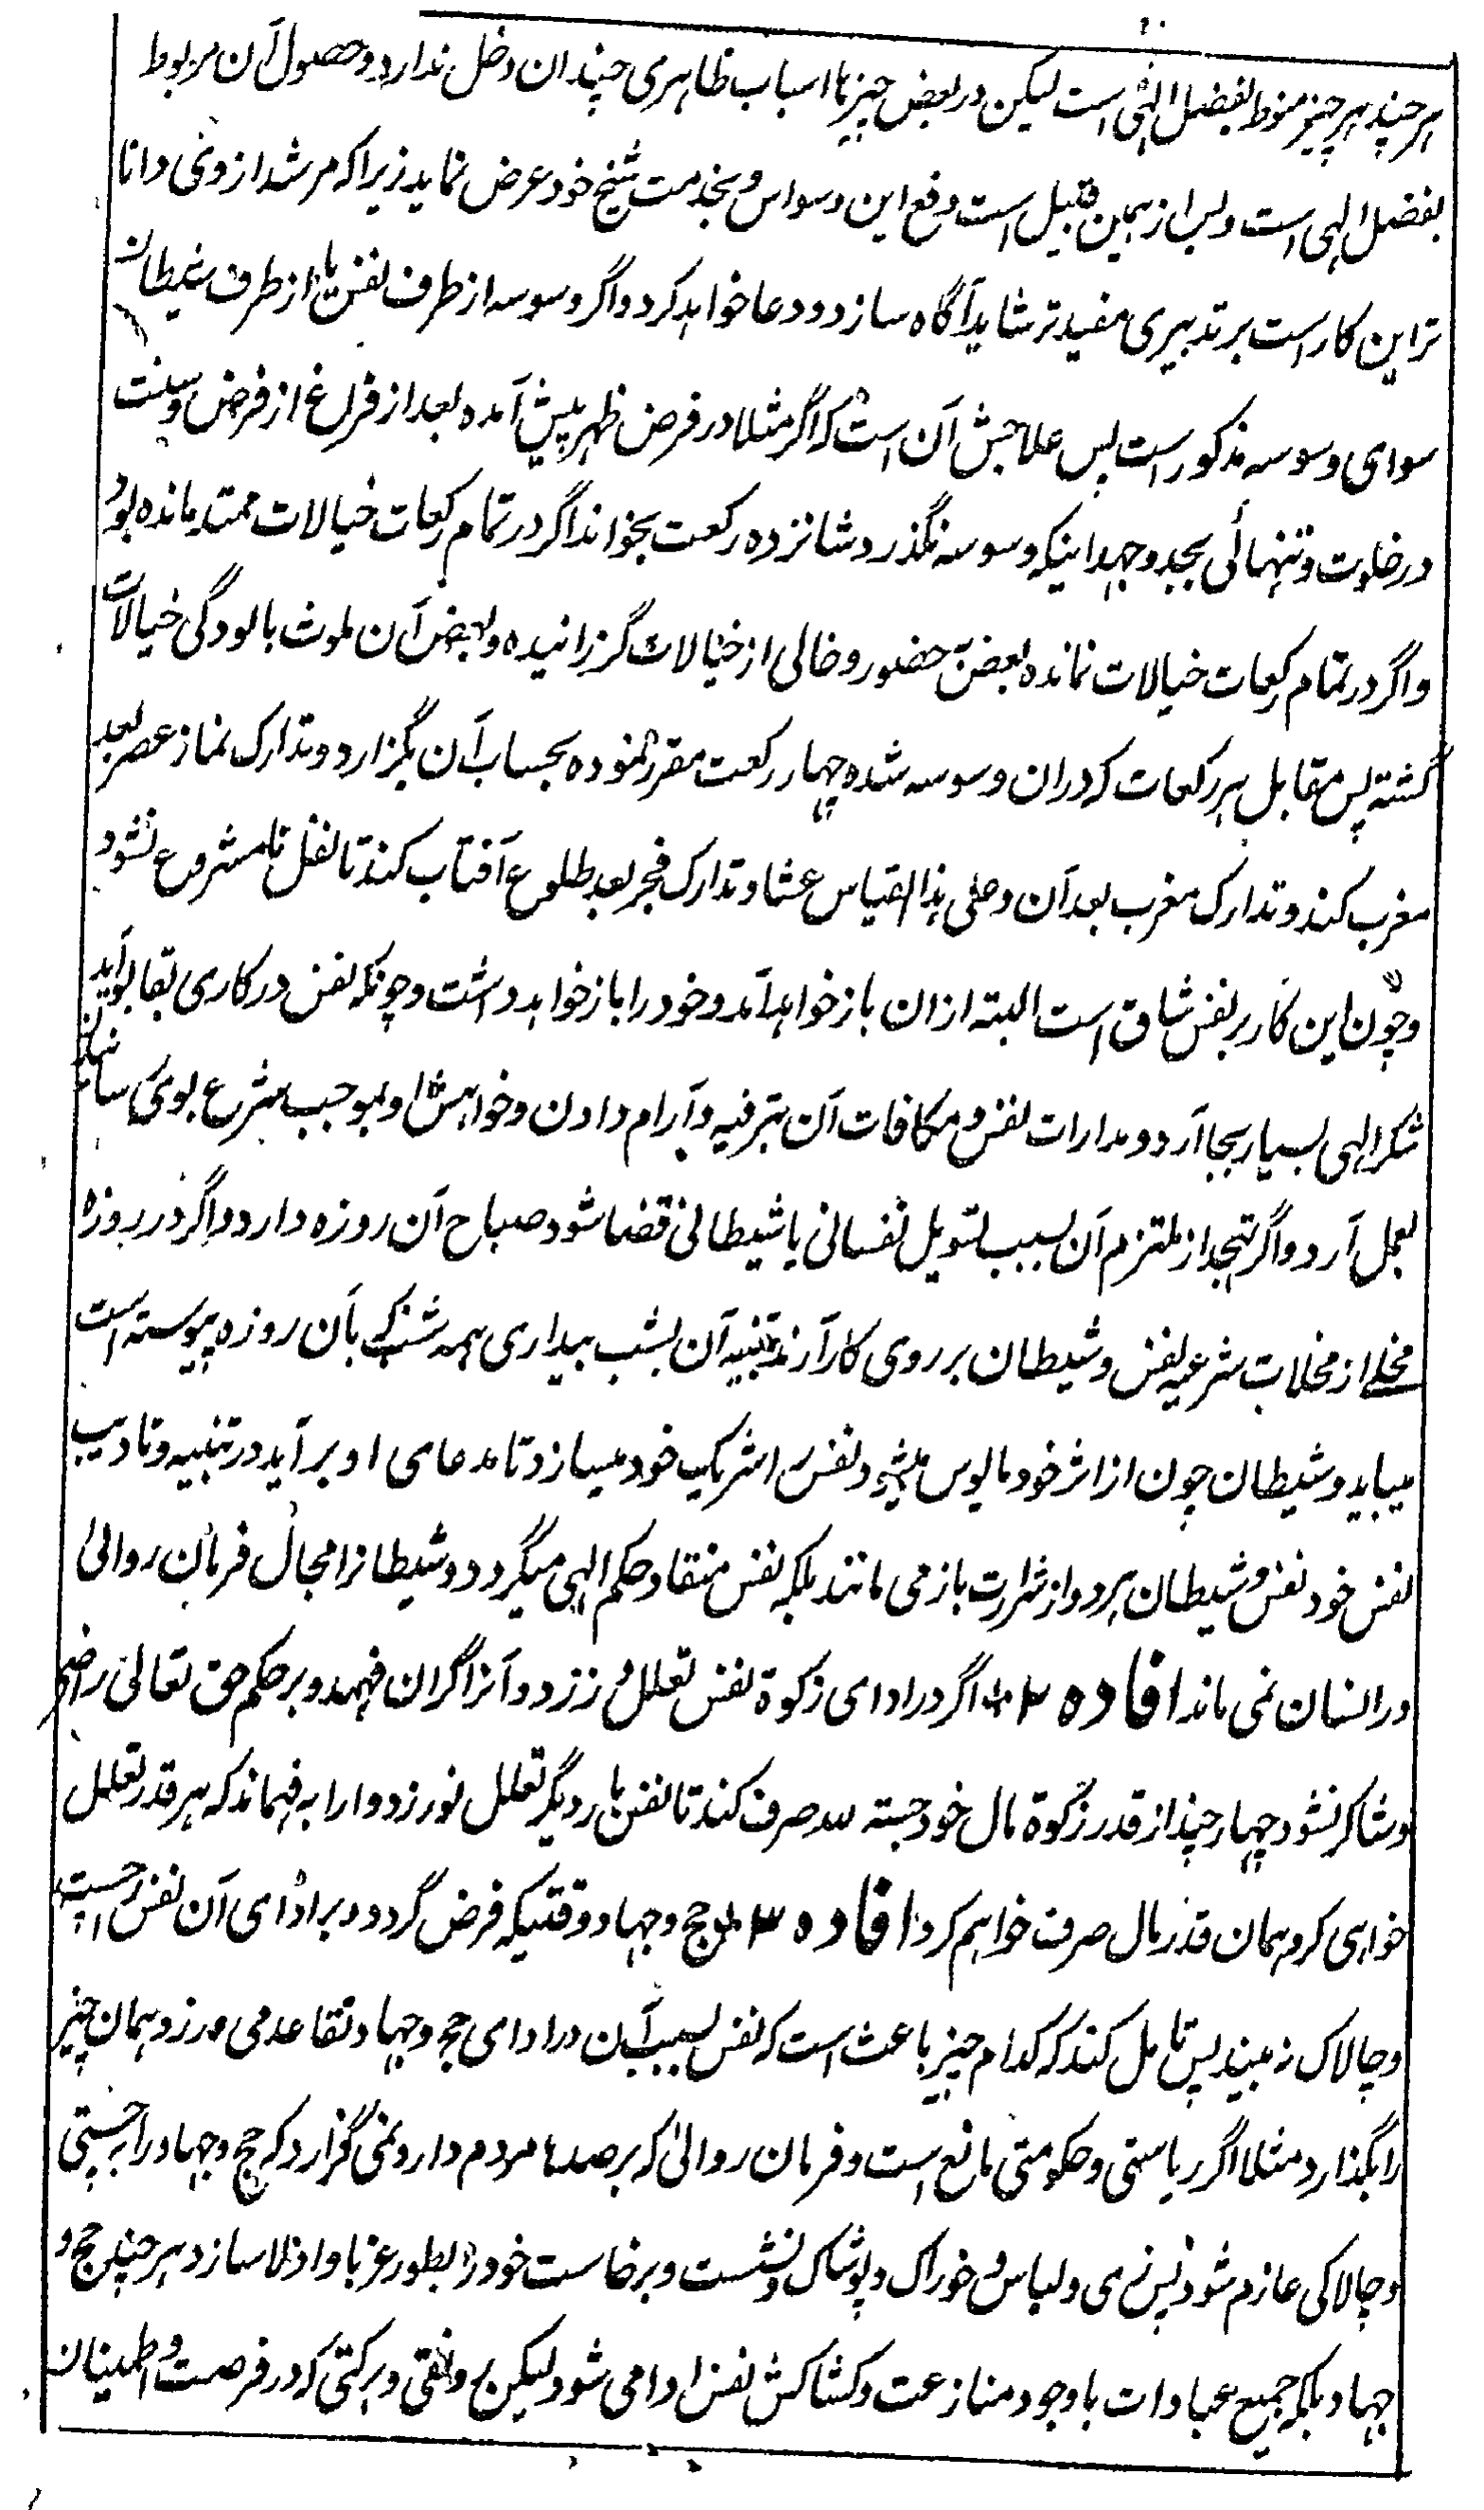 هرچند هر چیز منوط بفضل الهی است لیکن در بعض چیزها اسباب ظاهری چندان دخل ندارد و حصول آن مربوط
بفضل الهی است و بس از همین قبیل است دفع این وسواس و بخدمت شیخ خود عرض نماید زیرا که مرشد از وی دانا
تر این کار است بر تدبیری مفید تر شاید آگاه سازد و دعا خواهد کرد و اگر وسوسه از طرف نفس یا از طرف شیطان
سوای وسوسه مذکور است پس علاجش آن است که اگر مثلا در فرض ظهر پیش آمده بعد از فراغ از فرض و سنت
در خلوت و تنهائی بجد و جهد اینکه وسوسه نگذرد شانزده رکعت بخواند اگر در تمام رکعات خیالات ممتد مانده بود
و اگر در تمام رکعات خیالات نمانده بعض به حضور و خالی از خیالات گزرانیده و بعض آن ملوث بالودگی خیالات
گشته پس مقابل هر رکعات که دران وسوسه شده چهار رکعت مقرر نموده بحساب آن بگزارد و تدارک نماز عصر بعد
مغرب کند و تدارک مغرب بعد آن و علی هذا القیاس عشا و تدارک فجر بعد طلوع آفتاب کند تا نفل نامشروع نشود
و چون این کار بر نفس شاق است البته ازان باز خواهد آمد و خود را باز خواهد داشت و چونکه نفس در کاری بقابو آید
شکر الهی بسیار بجا آرد و مدارات نفس و مکافات آن بترفیه و آرام دادن و خواهش او بموجب شرع بوی رسانیدن
بعمل آرد و اگر تهجد از ملتزم آن بسبب تسویل نفسانی یا شیطانی قضا شود صباح آن روزه دارد و اگر در روزه
مخلے از مخلات شرعیه نفس و شیطان بر روی کار آرند تنبیه آن بشب بیداری همه شب که بآن روزه پیوسته است
میباید و شیطان چون از اثر خود مایوس میشود نفس را شریک خود میسازد تا مدعای او بر آید در تنبیه و تادیب
نفس خود نفس و شیطان هر دو از شرارت باز می مانند بلکه نفس منقاد حکم الهی میگردد و شیطان را مجال فرمان روائی
در انسان نمی ماند افاده ۲ اگر در ادای زکوة نفس تعلل ورزد و آنرا گران فهمد و بر حکم حق تعالی راضی
و شاکر نشود چهار چند از قدر زکوة مال خود حسبة لله صرف کند تا نفس بار دیگر تعلل نورزد و او را بفهماند که هر قدر تعلل
خواهی کرد همان قدر مال صرف خواهم کرد افاده ۳ در حج و جهاد وقتیکه فرض گردد و بر ادای آن نفس را چست
و چالاک نه بیند پس تامل کند که کدام چیز باعث است که نفس بسبب آن در ادای حج و جهاد تقاعد می ورزد همان چیز
را بگذارد مثلا اگر ریاستی و حکومتی مانع است و فرمان روائی که بر صدها مردم دارد نمی گزارد که حج و جهاد را بچستی
و چالاکی عازم شود پس زی و لباس و خوراک و پوشاک و نشست و برخاست خود را بطور غربا و اذلا سازد هرچند حج و
جهاد بلکه جمیع عبادات باوجود منازعت و کشاکش نفس ادا می شود لیکن رونقی و برکتی که در فرصت و اطمینان